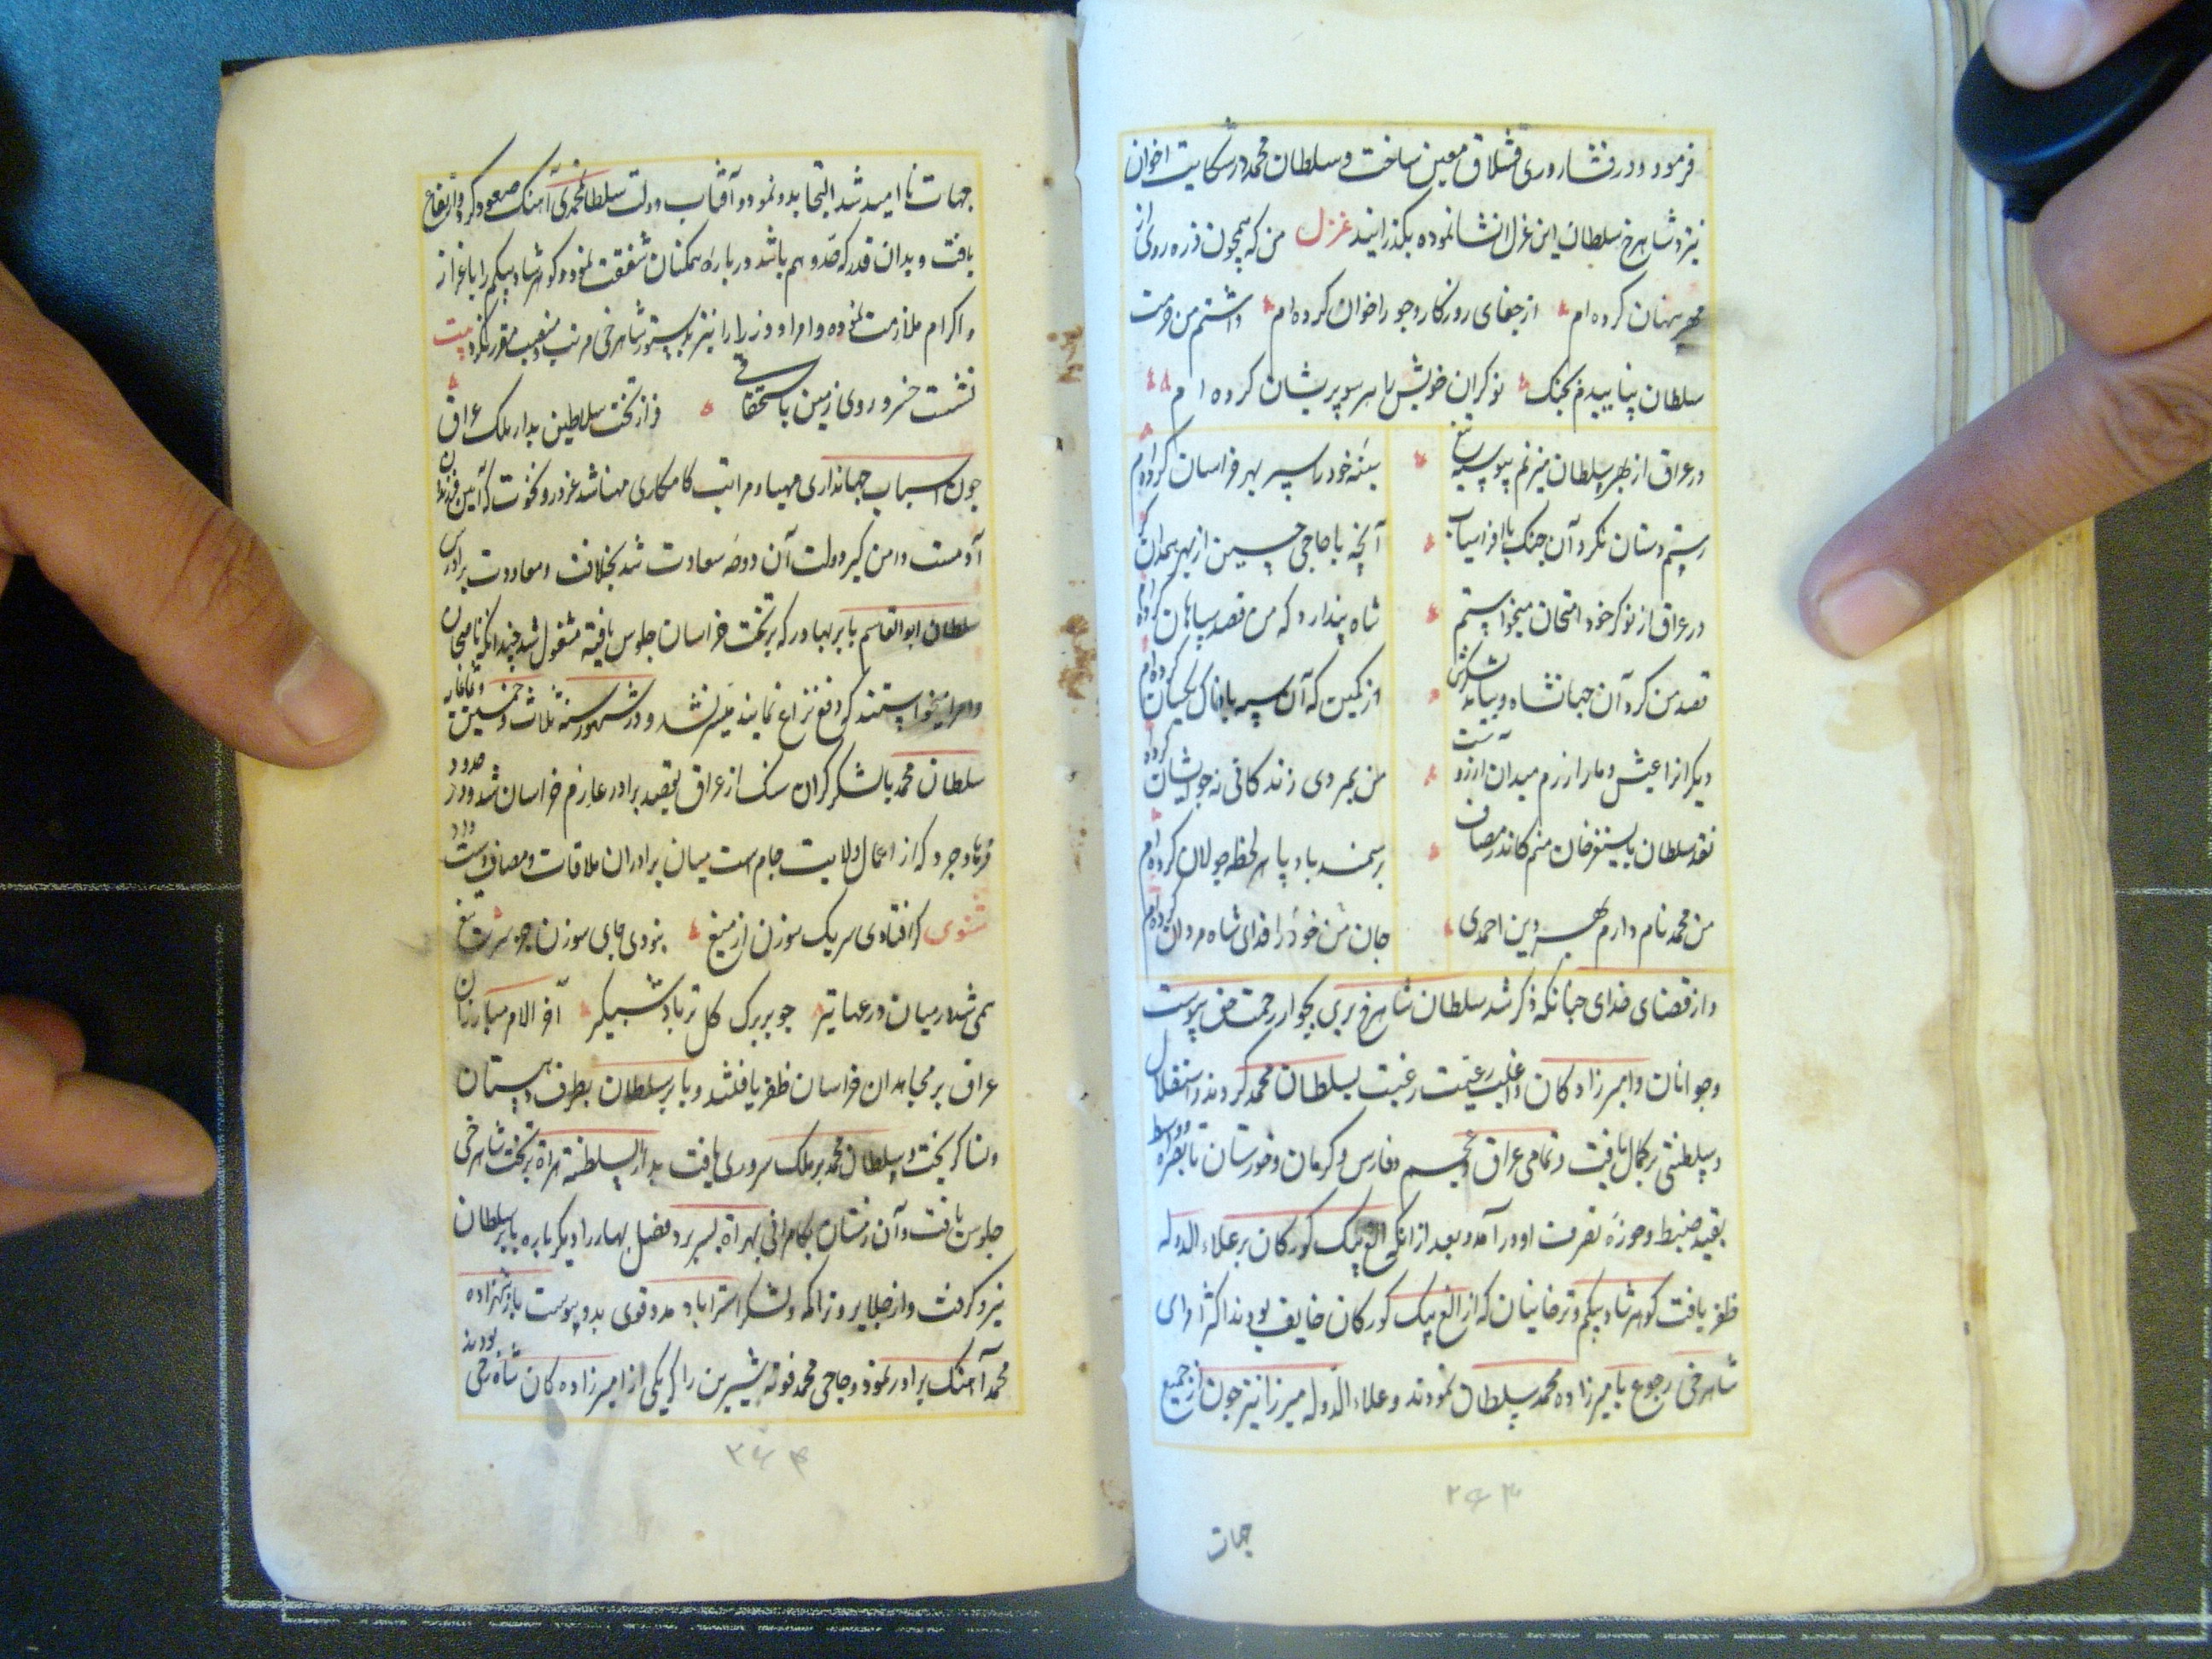 فرمود و در فشارودی قشلاق معین ساخت و سلطان محمد در شکایت اخوان
نزد شاهرخ سلطان این غزل انشا نموده بگذرانید غزل من که همچون ذره روی از
مهر پنهان کرده ام از جفای روزکار و جور اخوان کرده ام داشتم من حرمت
سلطان نپاییدم بجنک نوکران خویش را هر سو پریشان کرده ام
در عراق از بهر سلطان میزنم پیوسته تیغ سینه خود را سپر بهر خراسان کرده ام
رستم دستان نکرد آن جنک با افراسیاب آنچه با حاجی حسین از بهر همدان کرده ام
در عراق از نوکر خود امتحان میخواستم شاه پندارد که من قصد سپاهان کرده ام
قصد من کرد آن جهانشاه و بیامد لشکرش از کمین که آن سپه با خاک یکسان کرده ام
دیکر انرا عیش و ما را رزم میدان آرزوست من بمردی زندکانی نه چو ایشان کرده ام
نقد سلطان بایسنغر خان منم کاندر مصاف بر سمند بادپا هر لحظه جولان کرده ام
من محمد نام دارم بهر دین احمدی جان و تن خود را فدای شاه مردان کرده ام
و از قضای خدای چنانکه ذکر شد سلطان شاهرخ بری بجوار رحمت حق پیوست
و جوانان و امیرزادکان و اغلب رعیت رغبت بسلطان محمد کردند و استقلال
و سلطنتی بر کمال یافت و تمامی عراق عجم و فارس و کرمان و خوزستان تا بصره و واسط
بقید ضبط و حوزه تصرف او درآمد و بعد از انکه الغ بیک کورکان بر علاء الدوله
ظفر یافت کوهرشاد بیکم و ترخانیان که از الغ بیک کورکان خایف بودند اکثر امرای
شاهرخی رجوع با میرزاده محمد سلطان نمودند و علاء الدوله میرزا نیز چون از جمیع
۲۶۳
جهات
جهات نا امید شد التجا بدو نمود و آفتاب دولت سلطان محمدی آهنک صعود کرد و ارتفاع
یافت و بدان قدر که حد وهم باشد درباره همکنان شفقت نمود و کوهرشاد بیکم را باعزاز
و اکرام ملازمت نموده و امرا و وزرا را نیز بدستور شاهرخی مرتب و منصب مقرر کرد بیت
نشست خسرو روی زمین باستحقاق فراز تخت سلاطین بدار ملک عراق
چون اسباب جهانداری مهیا و مراتب کامکاری مهنا شد غرور و نخوت که آیین فرزندان
آدمست دامن کیر دولت آن دوحه سعادت شد بخلاف و معادات برادرش
سلطان ابوالقاسم بابر بهادر که بر تخت خراسان جلوس یافته مشغول شد چندانکه ناصحان
و امرا میخواستند که دفع نزاع نمایند میسر نشد و در شهور سنه ثلاث و خمسین و ثمانمایه
سلطان محمد با لشکر کران سنک از عراق بقصد برادر عازم خراسان شد و در حدود
فرهادجرد که از اعمال ولایت جام است میان برادران ملاقات و مصاف دست داد
مثنوی کر افتادی سر یک سوزن از میغ نبودی جای سوزن جز سر تیغ
همی شد در میان درعها تیر چو بر برک کل تر باد شبکیر آخر الامر مبارزان
عراق بر مجاهدان خراسان ظفر یافتند و بابر سلطان بطرف دهستان
و نسا کریخت و سلطان محمد بر ملک سروری یافت بدار السلطنه هراة بر تخت شاهرخی
جلوس یافت و آن زمستان بکامرانی بهراة بسر برد و فصل بهار را دیکر باره بابر سلطان
نیرو کرفت و از جلایر و تراکمه و لشکر استراباد مدد قوی بدو پیوست باز شهزاده
محمد آهنک برادر نمود و حاجی محمد قوناشیرین را که یکی از امیرزاده کان شاهرخی بودند
۲۶۴